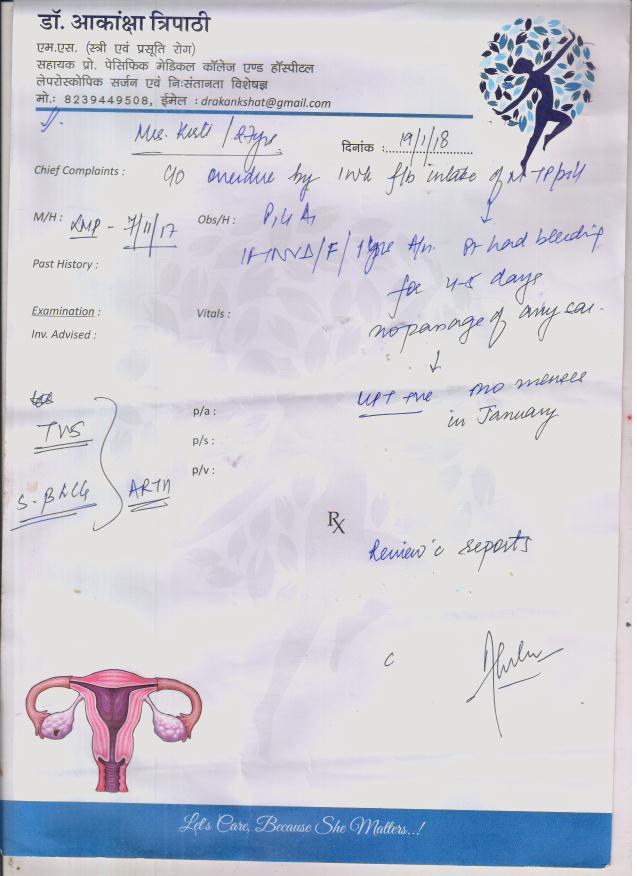 डॉ. आकांक्षा त्रिपाठी
एम.एस. (स्त्री एवं प्रसूति रोग)
सहायक प्रो. पेसिफिक मेडिकल कॉलेज एण्ड हॉस्पीटल
लेपरोस्कोपिक सर्जन एवं निःसंतानता विशेषज्ञ
मो.: 8239449508, ईमेल : drakankshat@gmail.com
Mrs. / 27yrs
दिनांक : 19/1/18
Chief Complaints : C/o overdue by 1wk f/b intake of MTPpill
M/H : LMP - 7/11/17 Obs/H :
Pt had bleeding
Past History :
for 4-5 days
Examination : Vitals :
no passage of any
Inv. Advised :
UPT +ve no menses
in January
p/a :
TVS
p/s :
p/v :
S-βHCG
Rx
Review c reports
Let's Care, Because She Matters..!